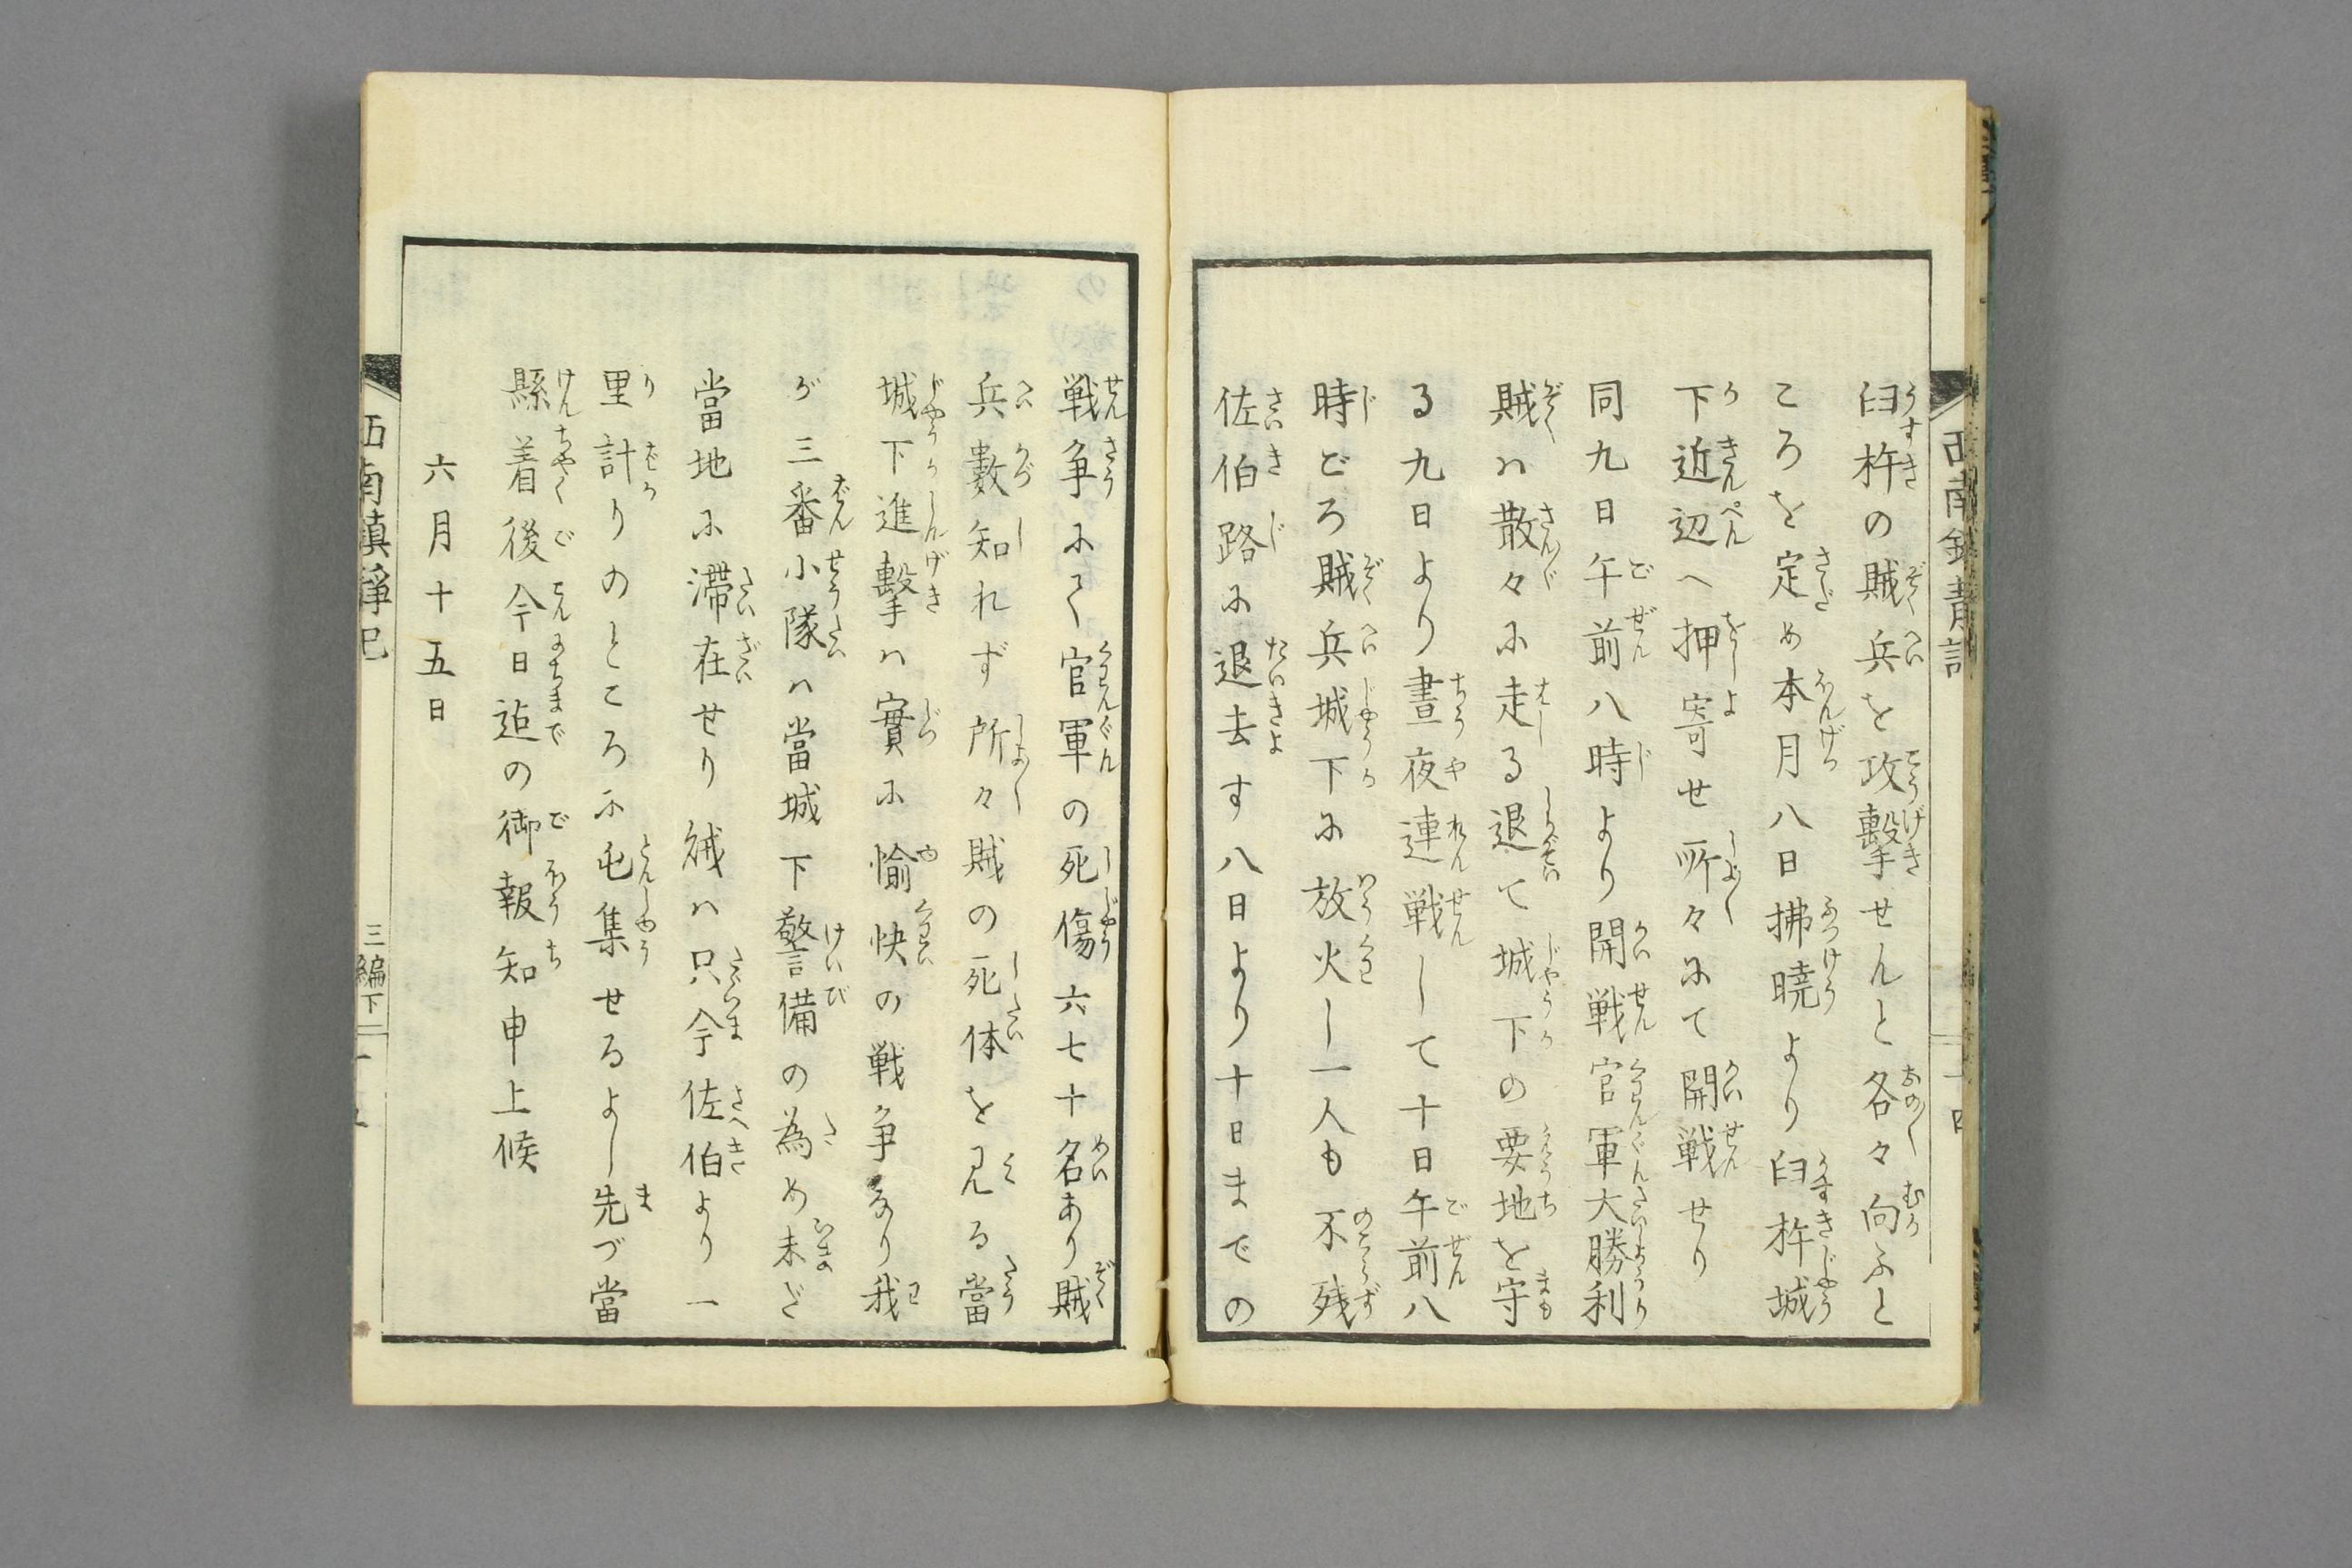 臼杵の賊兵を攻撃せんと各々向ふと
ころを定め本月八日拂暁より臼杵城
下近辺へ押寄せ所々にて開戦せり
同九日午前八時より開戦官軍大勝利
賊ハ散々に走る退て城下の要地を守
る九日より晝夜連戦して十日午前八
時ごろ賊兵城下に放火し一人も不残
佐伯路に退去す八日より十日までの
戦争にて官軍の死傷六七十名あり賊
兵數知れず所々賊の死体を見る當
城下進撃ハ實に愉快の戦争なり我
が三番小隊ハ當城下警備の為め未だ
當地に滞在せり賊ハ只今佐伯より一
里計りのところに屯集せるよし先づ當
縣着後今日迠の御報知申上候
六月十五日
西南鎮静記
三編下